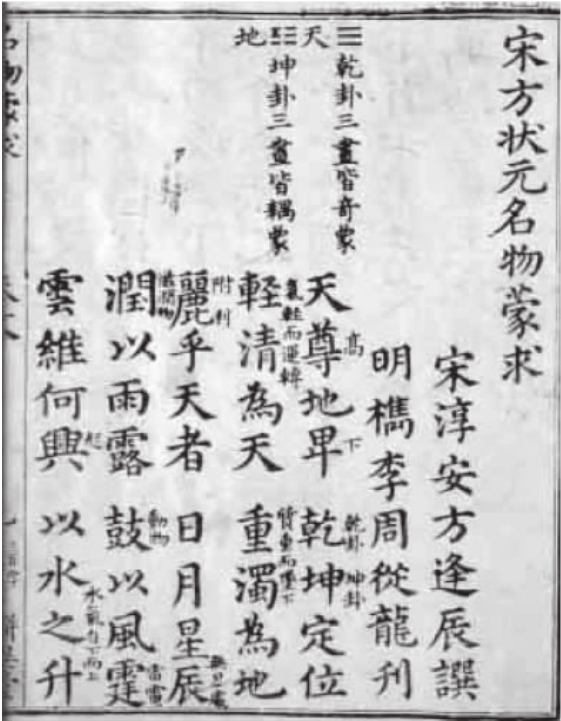 宋方状元名物蒙求
宋淳安方逢辰譔
明檇李周從龍刋
☰乾卦三畫皆奇蒙
天
☷坤卦三畫皆耦蒙
地
天尊地卑 乾坤定位
高 下 乾卦 坤卦
輕清為天 重濁為地
氣輕而運轉 質重而墜下
麗乎天者 日月星辰
附利
潤以雨露 鼓以風霆
滋潤物 動物 雷電
雲維何興 以水之升
起 水氣自下而上
名物蒙求